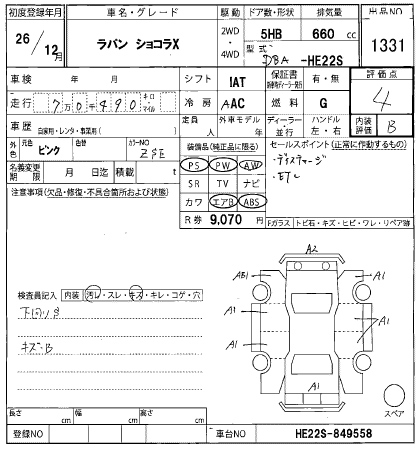 初度登録年月 車名・グレード 駆動 ドア数・形状 排気量 出品NO
26/12月 ラパン ショコラX 2WD・4WD 5HB 660 cc 1331
型式 DBA-HE22S
車検 年 月 シフト IAT 保証書 有・無 評価点
走行 7万0千490 キロ・マイル 冷房 AAC 燃料 G 4
車歴 自家用・レンタ・事業用( ) 定員 人 外車モデル 年 ディーラー・並行 ハンドル 左・右 内装評価 B
外色 元色 ピンク 色替 カラーNO ZSE
装備品(純正品に限る) セールスポイント(正常に作動するもの)
名義変更期限 月 日迄 積載 t
PS PW AW
・ディスチャージ
SR TV ナビ
注意事項(欠品・修復・不具合箇所および状態)
カワ エアB ABS
R券 9,070 円
Fガラス トビ石・キズ・ヒビ・ワレ・リペア跡
A2
AB1 A1
検査員記入 内装 汚レ・スレ・キズ・キレ・コゲ・穴
下回りS
A1 A1
キズ・B
A1 A1
A1
スペア
長さ cm 幅 cm 高さ cm
登録NO 車台NO HE22S-849558